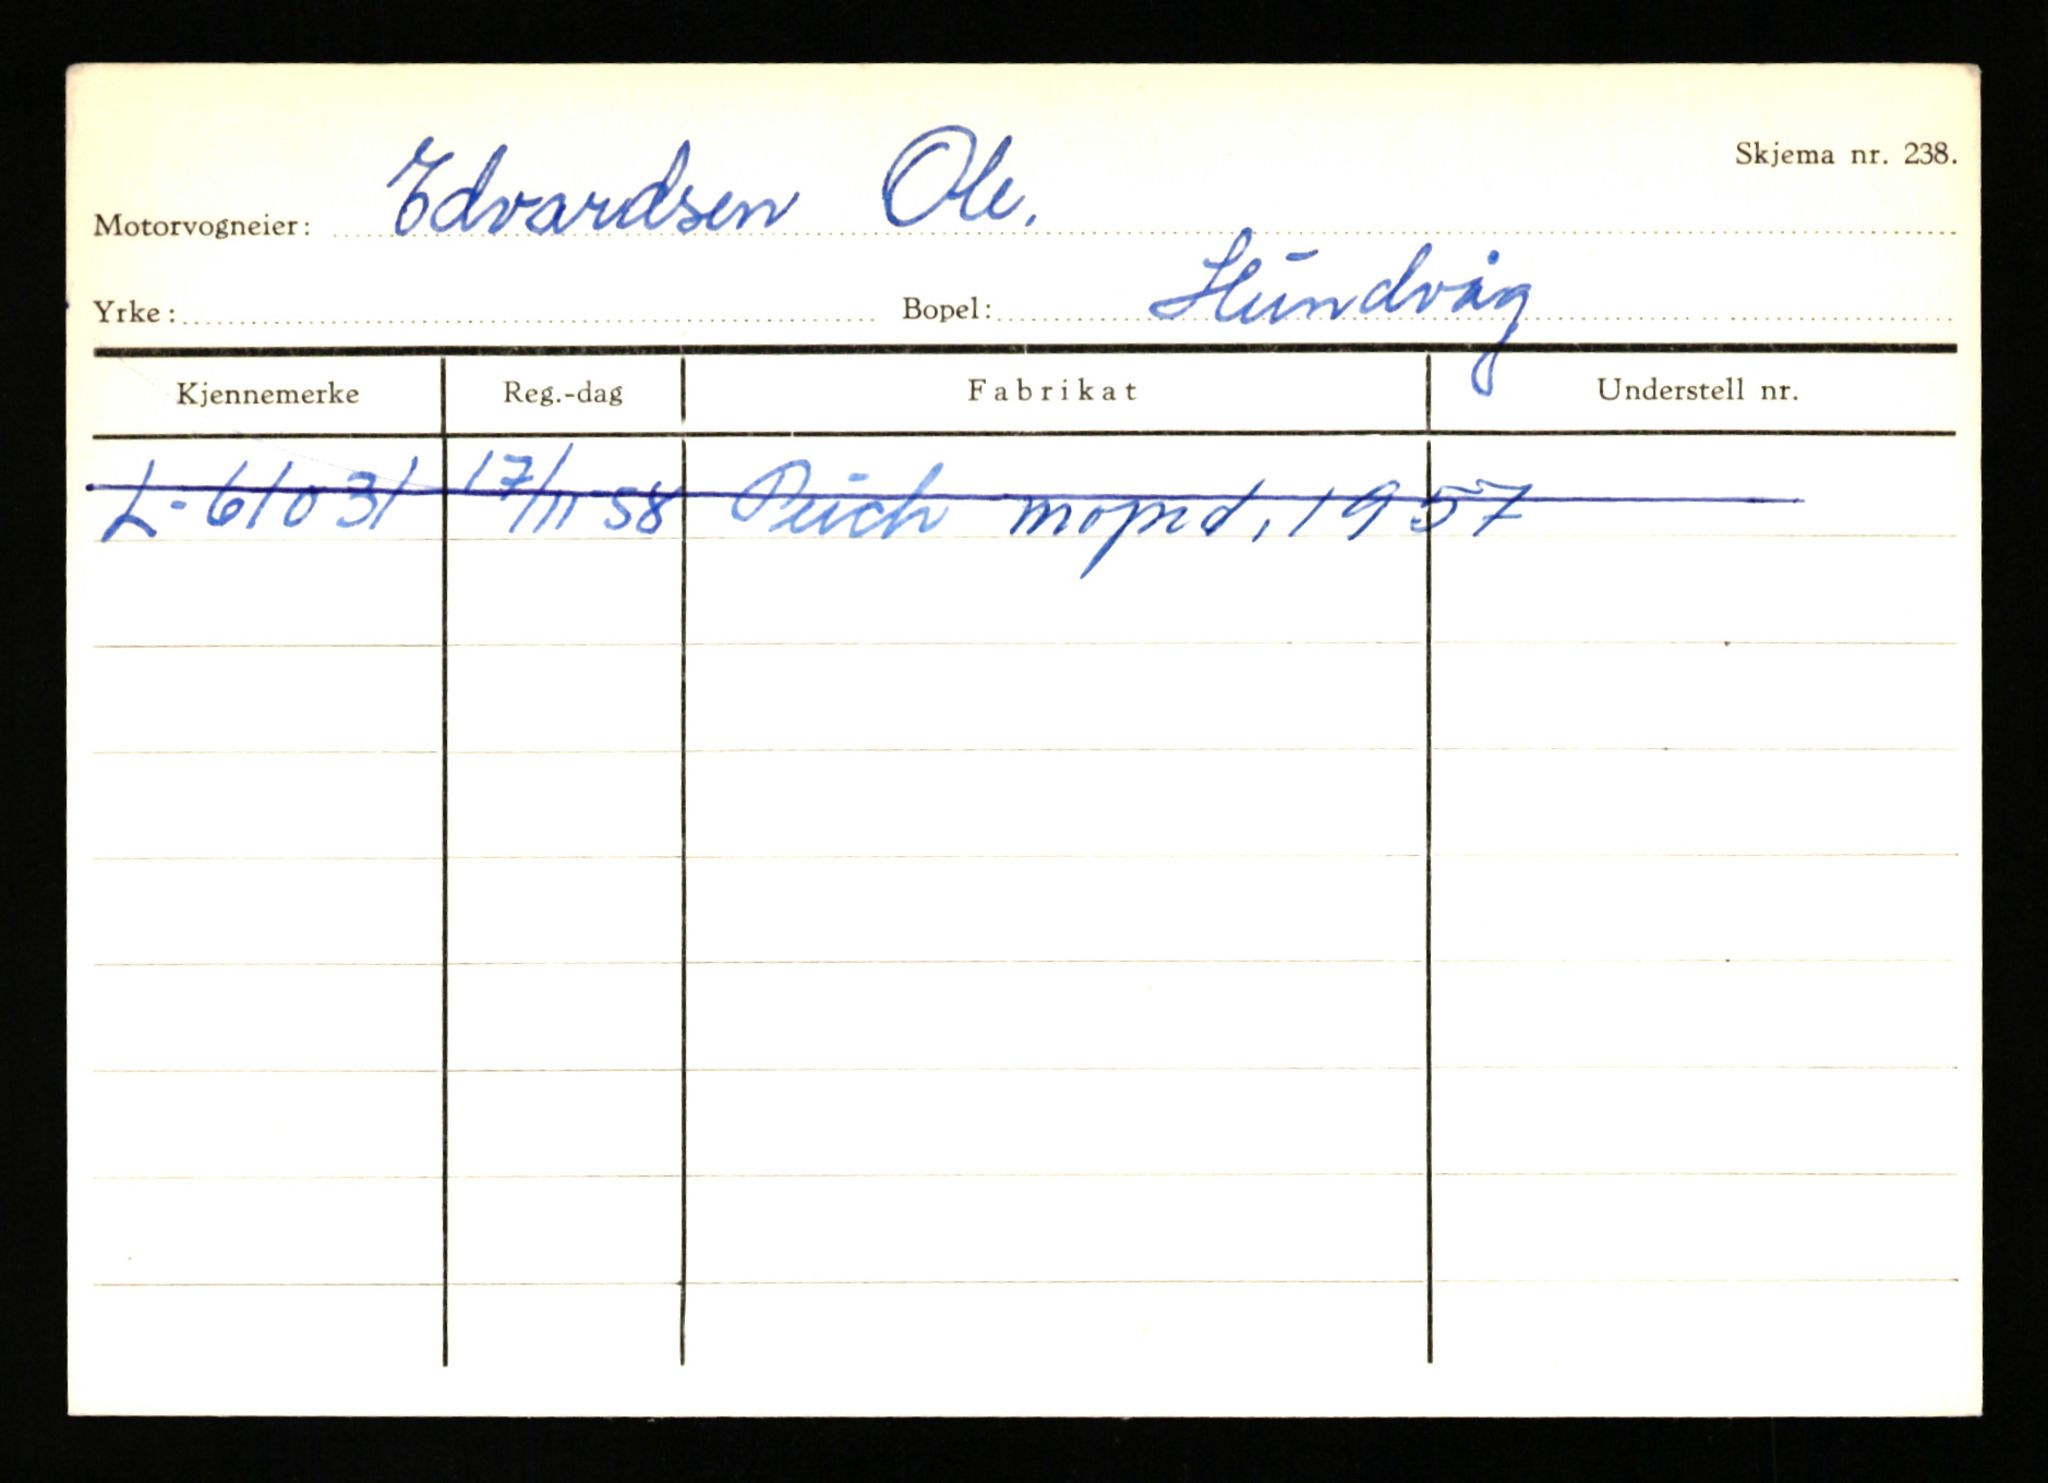 Skjema nr. 238.
Motorvogneier: Edvardsen Ole.
Yrke: Bopel: Hundvåg
Kjennemerke Reg.-dag Fabrikat Understell nr.
L-61031 17/11 58 Puch moped, 1957